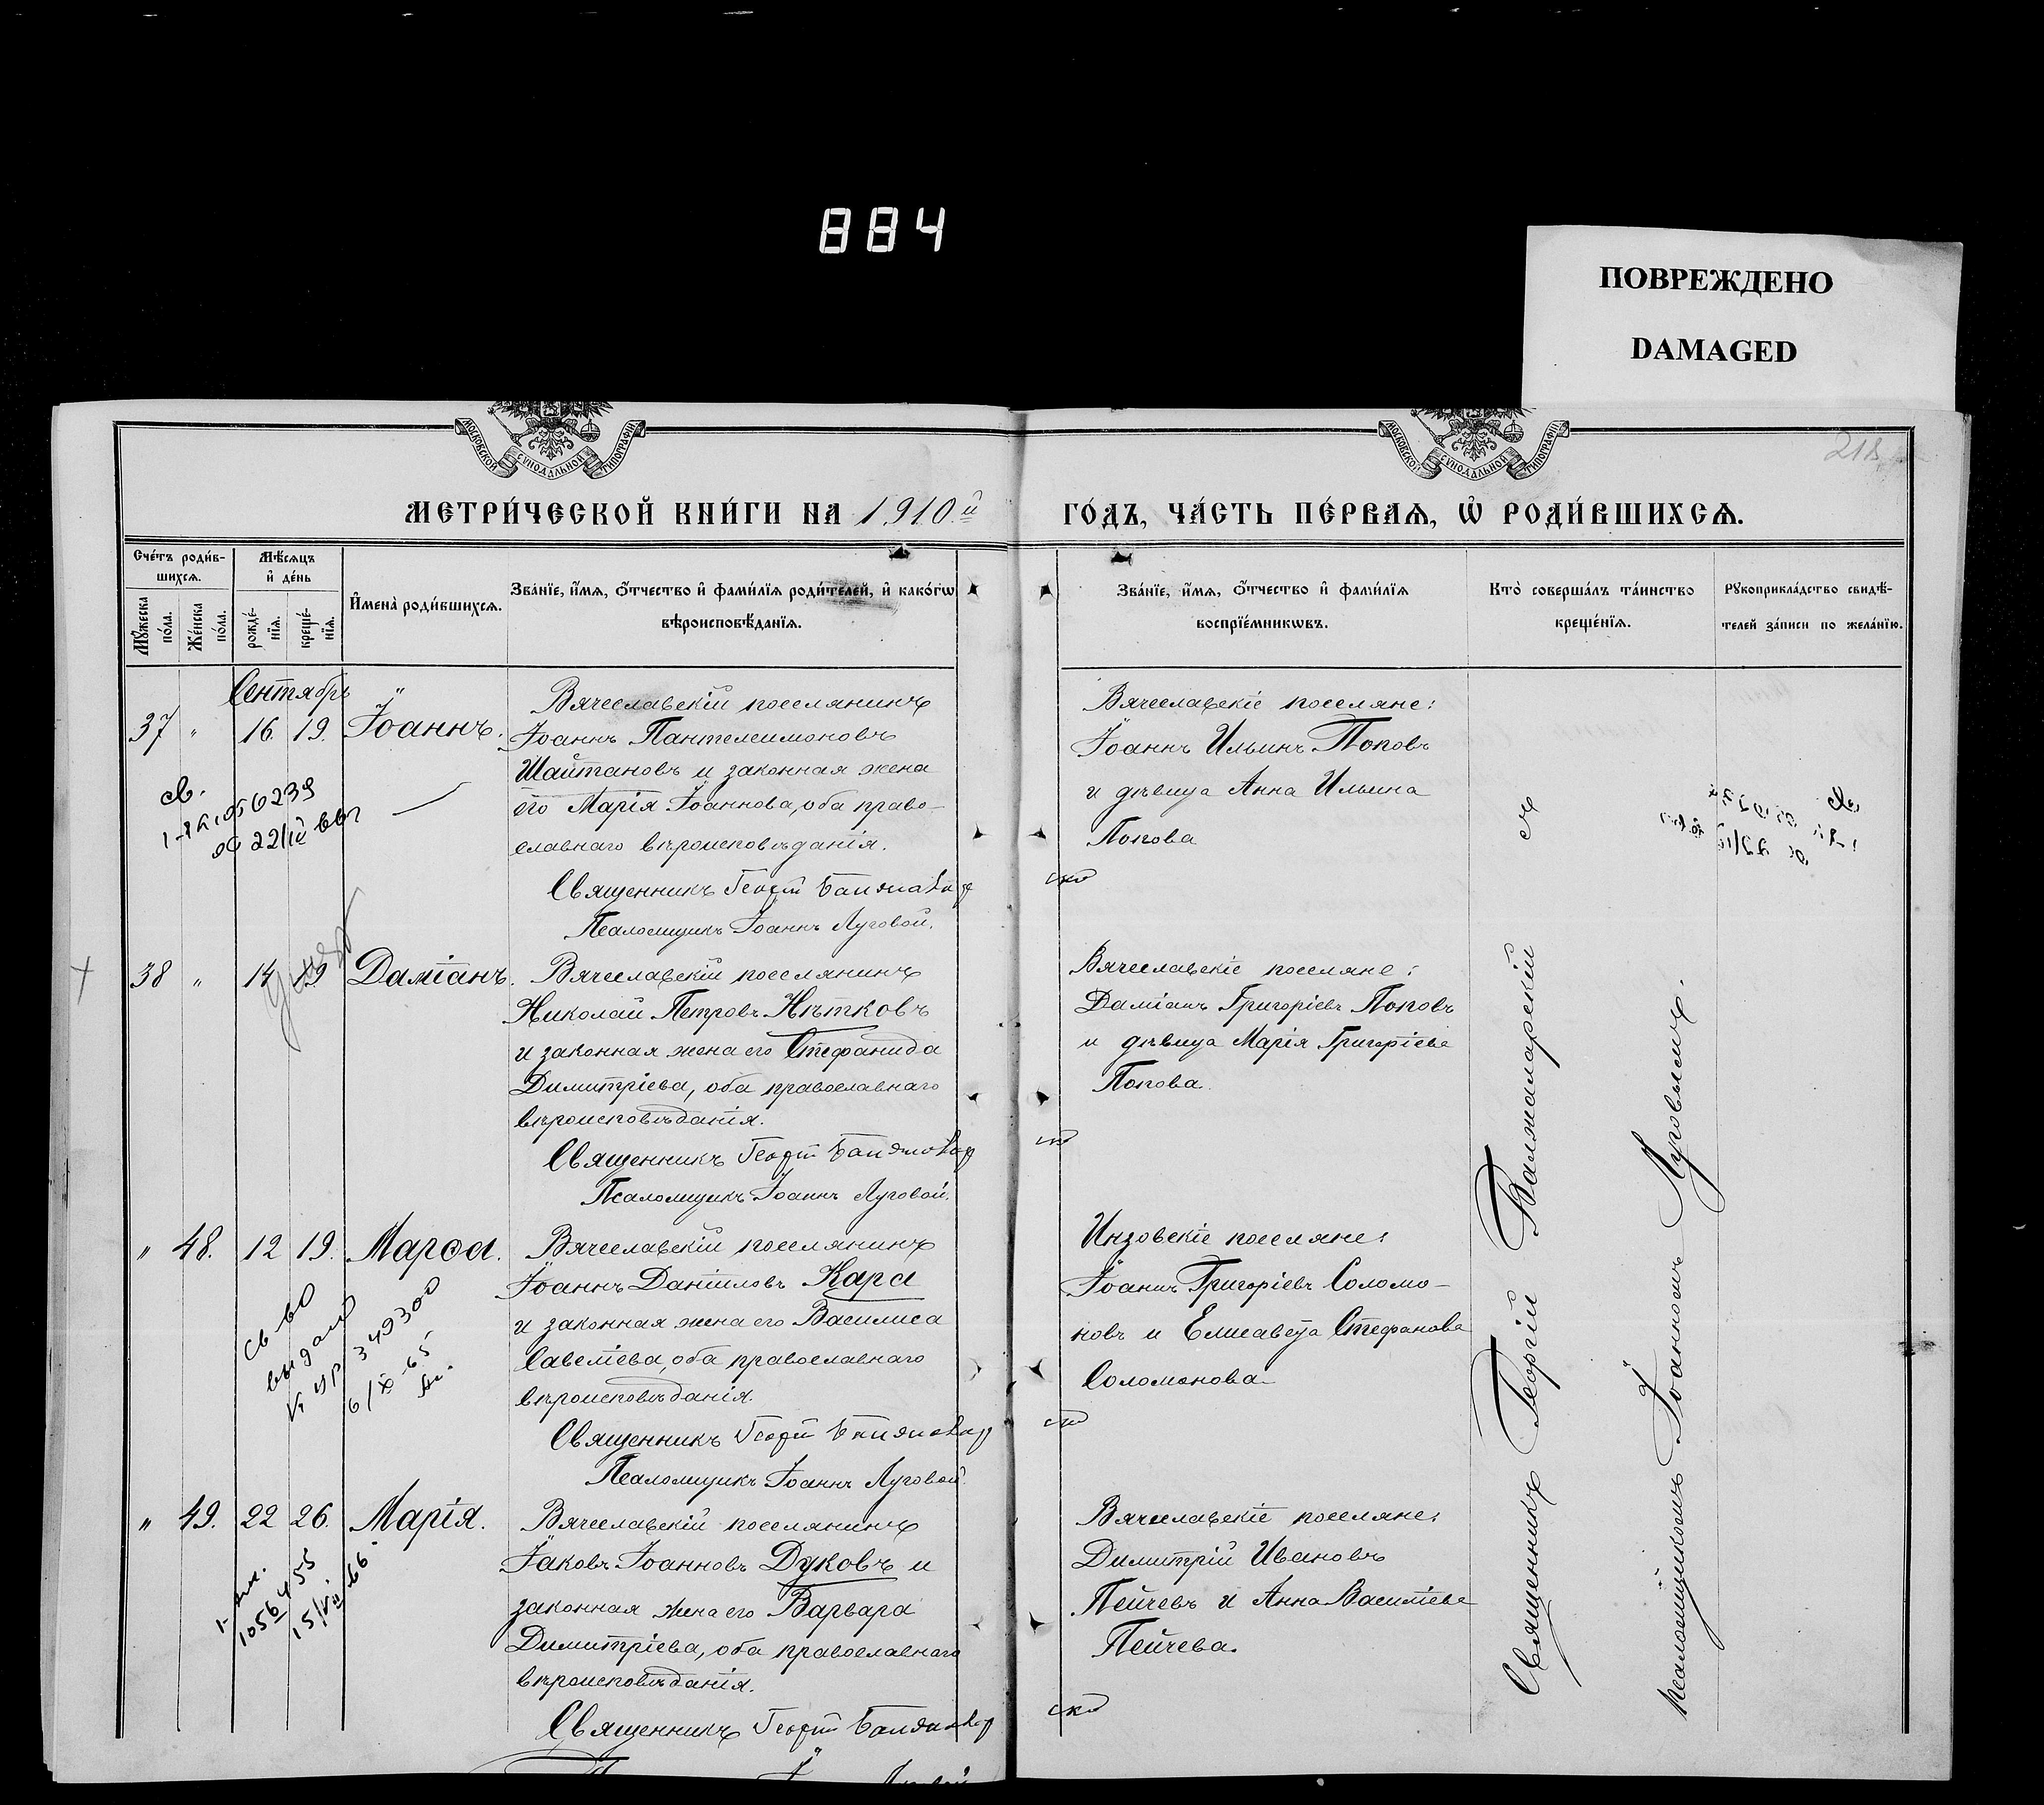 884
ПОВРЕЖДЕНО
DAMAGED
МОСКОВСКОЙ СУНОДАЛЬНОЙ ТИПОГРАФІИ
МОСКОВСКОЙ СУНОДАЛЬНОЙ ТИПОГРАФІИ
218
МЕТРИ́ЧЕСКОЙ КНИ́ГИ НА 1910й
ГО́ДЪ, ЧА́СТЬ ПЕ́РВАѦ, Ѡ҆ РОДИ́ВШИХСѦ.
Сче́тъ роди́в-
шихсѧ.
Мꙋ́жеска по́ла.
Же́нска по́ла.
Мѣ́сѧцъ
и҆ де́нь
рожде́-
нїѧ.
креще́-
нїѧ.
И҆мена̀ роди́вшихсѧ.
Зва́нїе, и҆́мѧ, ѻ҆́тчество и҆ фами́лїѧ роди́телей, и҆ како́гѡ
вѣроисповѣ́данїѧ.
Зва́нїе, и҆́мѧ, ѻ҆́тчество и҆ фами́лїѧ
воспрїе́мникѡвъ.
Кто̀ соверша́лъ та́инство
креще́нїѧ.
Рꙋкоприкла́дство свидѣ́-
телей за́писи по жела́нїю.
Сентябрь "
37 " 16. 19. Іоаннъ.
Вячеславскій поселянинъ
Іоаннъ Пантелеимоновъ
Шайтановъ и законная жена
его Марія Іоаннова, оба право-
славнаго вѣроисповѣданія.
Священникъ Георгій
Псаломщикъ Іоаннъ Луговой.
св.
Вячеславскіе поселяне:
Іоаннъ Ильинъ Поповъ
и дѣвица Анна Ильина
Попова
38 " 14 19 Даміанъ.
Вячеславскій поселянинъ
Николай Петровъ Нѣтковъ
и законная жена его Стефанида
Димитріева, оба православнаго
вѣроисповѣданія.
Священникъ Георгій
Псаломщикъ Іоаннъ Луговой.
Вячеславскіе поселяне:
Даміанъ Григоріевъ Поповъ
и дѣвица Марія Григоріева
Попова.
" 48. 12 19. Марѳа.
Вячеславскій поселянинъ
Іоаннъ Даніиловъ Кара
и законная жена его Василиса
Савеліева, оба православнаго
вѣроисповѣданія.
Священникъ Георгій
Псаломщикъ Іоаннъ Луговой.
св-во
выдано
349300
Инзовскіе поселяне:
Іоаннъ Григоріевъ Соломо-
новъ и Елисавета Стефанова
Соломонова
" 49. 22 26. Марія.
Вячеславскій поселянинъ
Іаковъ Іоанновъ Дуковъ и
законная жена его Варвара
Димитріева, оба православнаго
вѣроисповѣданія.
Священникъ Георгій
1056455
Вячеславскіе поселяне:
Димитрій Ивановъ
Пейчевъ и Анна Василіева
Пейчева.
Священникъ Георгій съ
псаломщикомъ Іоанномъ Луговымъ.